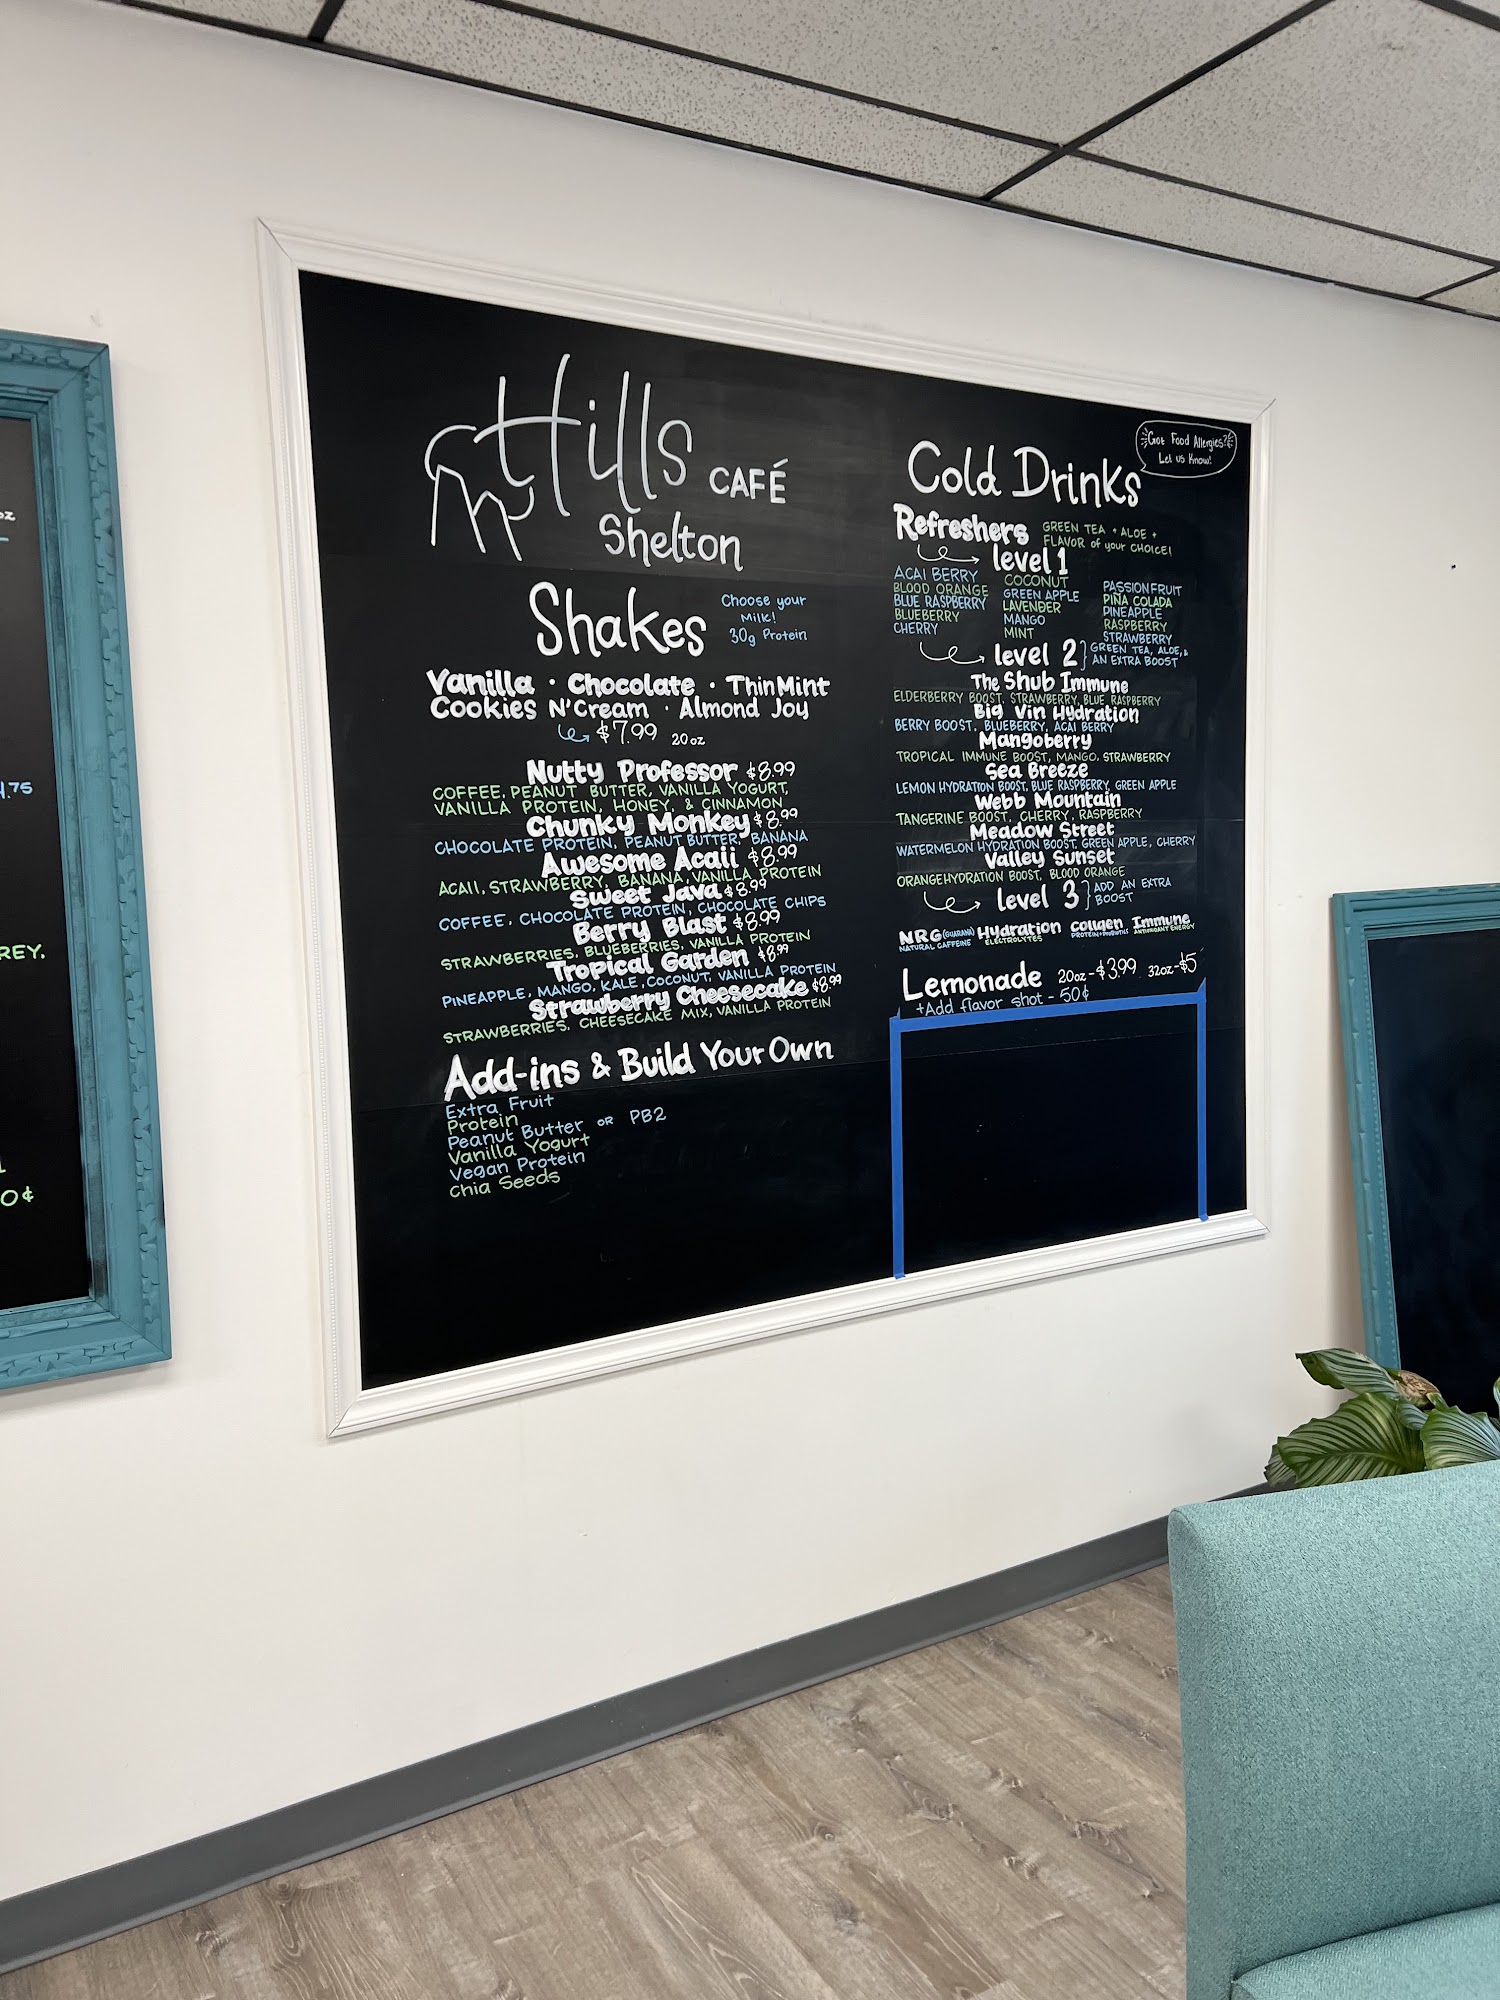 oz
4.75
REY.
0¢
Hills CAFÉ
Shelton
Shakes
Choose your
Milk!
30g Protein
Vanilla · Chocolate · Thin Mint
Cookies N' Cream · Almond Joy
$7.99 20oz
Nutty Professor $8.99
COFFEE, PEANUT BUTTER, VANILLA YOGURT,
VANILLA PROTEIN, HONEY, & CINNAMON
Chunky Monkey $8.99
CHOCOLATE PROTEIN, PEANUT BUTTER, BANANA
Awesome Acaii $8.99
ACAII, STRAWBERRY, BANANA, VANILLA PROTEIN
Sweet Java $8.99
COFFEE, CHOCOLATE PROTEIN, CHOCOLATE CHIPS
Berry Blast $8.99
STRAWBERRIES, BLUEBERRIES, VANILLA PROTEIN
Tropical Garden $8.99
PINEAPPLE, MANGO, KALE, COCONUT, VANILLA PROTEIN
Strawberry Cheesecake $8.99
STRAWBERRIES, CHEESECAKE MIX, VANILLA PROTEIN
Add-ins & Build Your Own
Extra Fruit
Protein
Peanut Butter OR PB2
Vanilla Yogurt
Vegan Protein
Chia Seeds
Got Food Allergies?
Let us Know!
Cold Drinks
Refreshers GREEN TEA + ALOE +
FLAVOR of your CHOICE!
level 1
ACAI BERRY COCONUT PASSIONFRUIT
BLOOD ORANGE GREEN APPLE PIÑA COLADA
BLUE RASPBERRY LAVENDER PINEAPPLE
BLUEBERRY MANGO RASPBERRY
CHERRY MINT STRAWBERRY
level 2 } GREEN TEA, ALOE, &
AN EXTRA BOOST
The Shub Immune
ELDERBERRY BOOST, STRAWBERRY, BLUE RASPBERRY
Big Vin Hydration
BERRY BOOST, BLUEBERRY, ACAI BERRY
Mangoberry
TROPICAL IMMUNE BOOST, MANGO, STRAWBERRY
Sea Breeze
LEMON HYDRATION BOOST, BLUE RASPBERRY, GREEN APPLE
Webb Mountain
TANGERINE BOOST, CHERRY, RASPBERRY
Meadow Street
WATERMELON HYDRATION BOOST, GREEN APPLE, CHERRY
Valley Sunset
ORANGE HYDRATION BOOST, BLOOD ORANGE
level 3 } ADD AN EXTRA
BOOST
NRG (GUARANA) Hydration Collagen Immune
NATURAL CAFFEINE ELECTROLYTES PROTEIN+PROBIOTICS ANTIOXIDANT ENERGY
Lemonade 20oz-$3.99 32oz-$5
+Add flavor shot - 50¢